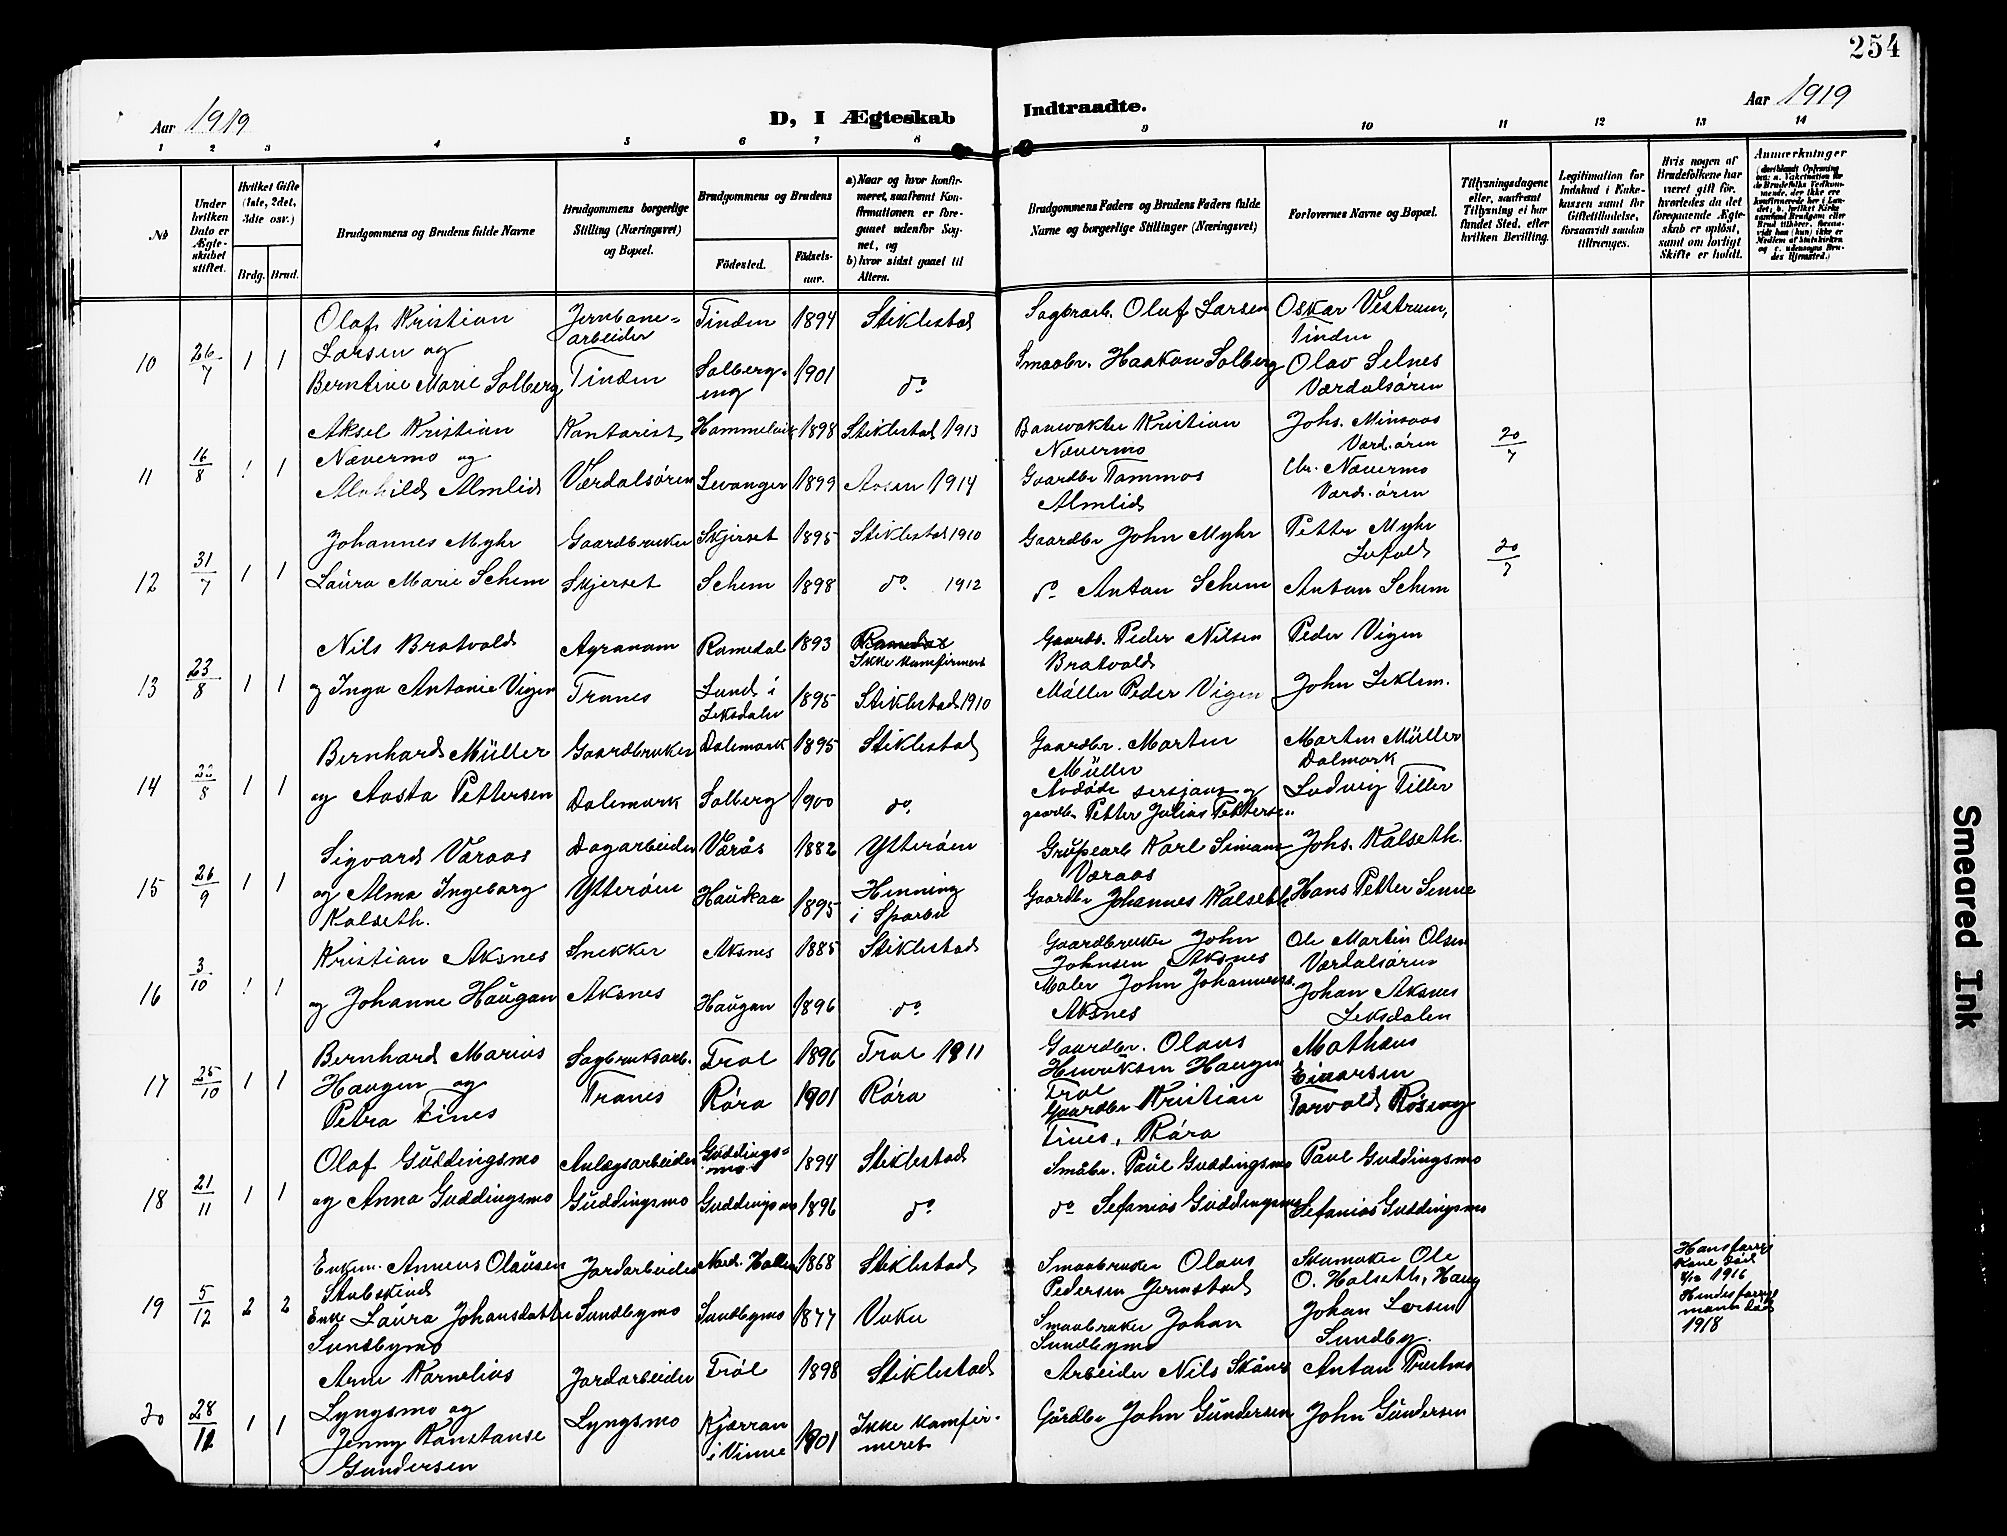 254
Aar 1919
D, I Ægteskab
Indtraadte.
Aar 1919
1 2 3 4 5 6 7 8 9 10 11 12 13 14
No
Under hvilken Dato er Ægteskabet stiftet.
Hvilket Gifte (1ste, 2det, 3die osv.)
Brdg. Brud.
Brudgommens og Brudens fulde Navne
Brudgommens borgerlige Stilling (Næringsvei) og Bopæl.
Brudgommens og Brudens
Födested.
Födsels-aar.
a) Naar og hvor konfirmeret, saafremt Konfirmationen er foregaaet udenfor Sognet, og
b) hvor sidst gaaet til Alters.
Brudgommens Faders og Brudens Faders fulde Navne og borgerlige Stillinger (Næringsvei)
Forlovernes Navne og Bopæl.
Tillysningsdagene eller, saafremt Tillysning ei har fundet Sted, efter hvilken Bevilling.
Legitimation for Indskud i Enkekassen samt for Giftetilladelse, forsaavidt saadan tiltrenges.
Hvis nogen af Brudefolkene har været gift för, hvorledes da det foregaaende Ægteskab er oplöst, samt om lovligt Skifte er holdt.
Anmærkninger
10 26/7 1 1
Olaf Kristian
Larsen og
Berntine Marie Solberg
Jernbane=
arbeider
Tinden
Tinden 1894 Stiklestad
Solberg=
eng 1901 do
Sagbrarb. Oluf Larsen
Smaabr. Haakon Solberg
Oskar Vestrum,
Tinden
Olav Selnes
Værdalsøren
11 16/8 1 1
Aksel Kristian
Nævermo og
Alvhild Almlid
Kontorist
Værdalsøren
Hammelvik 1898 Stiklestad 1913
Levanger 1899 Aasen 1914
Banevokter Kristian
Nævermo
Gaardbr Tommas
Almlid
Johs. Minsaas
Værd.øren
Chr. Nævermo
Værd.øren
20/7
12 31/7 1 1
Johannes Myhr
Laura Marie Schem
Gaardbruker
Skjerset
Skjerset 1895 Stiklestad 1910
Schem 1898 do. 1912
Gaardbr John Myhr
do Anton Schem
Petter Myhr
Anton Schem
20/7
13 23/8 1 1
Nils Bratvold
og Inga Antonie Vigen
Agronom
Trones
Romedal 1893 Romedal
Ikke konfirmert
Lund i
Leksdalen 1895 Stiklestad 1910
Gaardb. Peder Nilsen
Bratvold
Møller Peder Vigen
Peder Vigen
John Leklem.
14 22/8 1 1
Bernhard Müller
og Aasta Pettersen
Gaardbruker
Dalemark
Dalemark 1895 Stiklestad
Solberg 1900 do.
Gaardbr. Martin
Müller
Avdøde sersjant og
gaardbr Petter Julius Pettersen
Martin Müller
Dalmark
Ludvig Tiller
15 26/9 1 1
Sigvard Våraas
og Alma Ingeborg
Kalseth.
Dagarbeider
Ytterøen
Vårås 1882 Ytterøen
Haukaa 1895 Henning
i Sparbu
Grubearb Karl Simans
Våraas
Gaardbr Johannes Kalseth
Johs. Kalseth.
Hans Petter Sinne
16 3/10 1 1
Kristian Aksnes
og Johanne Haugan
Snekker
Aksnes
Aksnes 1885 Stiklestad
Haugan 1896 do.
Gaardbruker John
Johnsen Aksnes
Maler John Johannes.
Aksnes
Ole Martin Olsen
Værdalsøren
Johan Aksnes
Leksdalen
17 25/10 1 1
Bernhard Marius
Haugen og
Petra Tines
Sagbruksarb.
Trones
Frol 1896 Frol 1911
Røra 1901 Røra
Gaardbr. Olaus
Henriksen Haugen
Frol
Gaardbr Kristian
Tines, Røra
Mathæus
Einarsen
Torvald Røseng
18 21/11 1 1
Olaf Guddingsmo
og Anna Guddingsmo
Anlægsarbeider
Guddingsmo
Guddings=
mo 1894 Stiklestad
Guddingsmo 1896 do
Småbr. Paul Guddingsmo
do Sefanias Guddingsmo
Paul Guddingsmo
Sefanias Guddingsmo
19 5/12 2 2
Enkem. Anneus Olausen
Stubskind
Enke Laura Johansdatter
Sundbymo
Jordarbeider
Sundbymo
Nord. Hallem 1868 Stiklestad
Sundbymo 1877 Vuku
Smaabruker Olaus
Pedersen Jermstad
Smaabruker Johan
Sundbymo
Skomaker Ole
O. Halseth, Haug
Johan Larsen
Sundby.
Hans forrige
kone død
1916
Hendes forrige
mann død
1918
20 28/11 1 1
Arne Kornelius
Lyngsmo og
Jenny Konstanse
Gundersen
Jordarbeider
Lyngsmo
Frol 1898 Stiklestad
Kjærran
i Vinne 1901 Ikke konfir-
meret
Arbeider Nils Skåne
Gårdbr John Gundersen
Anton Prestmo
John Gundersen
Smeared Ink